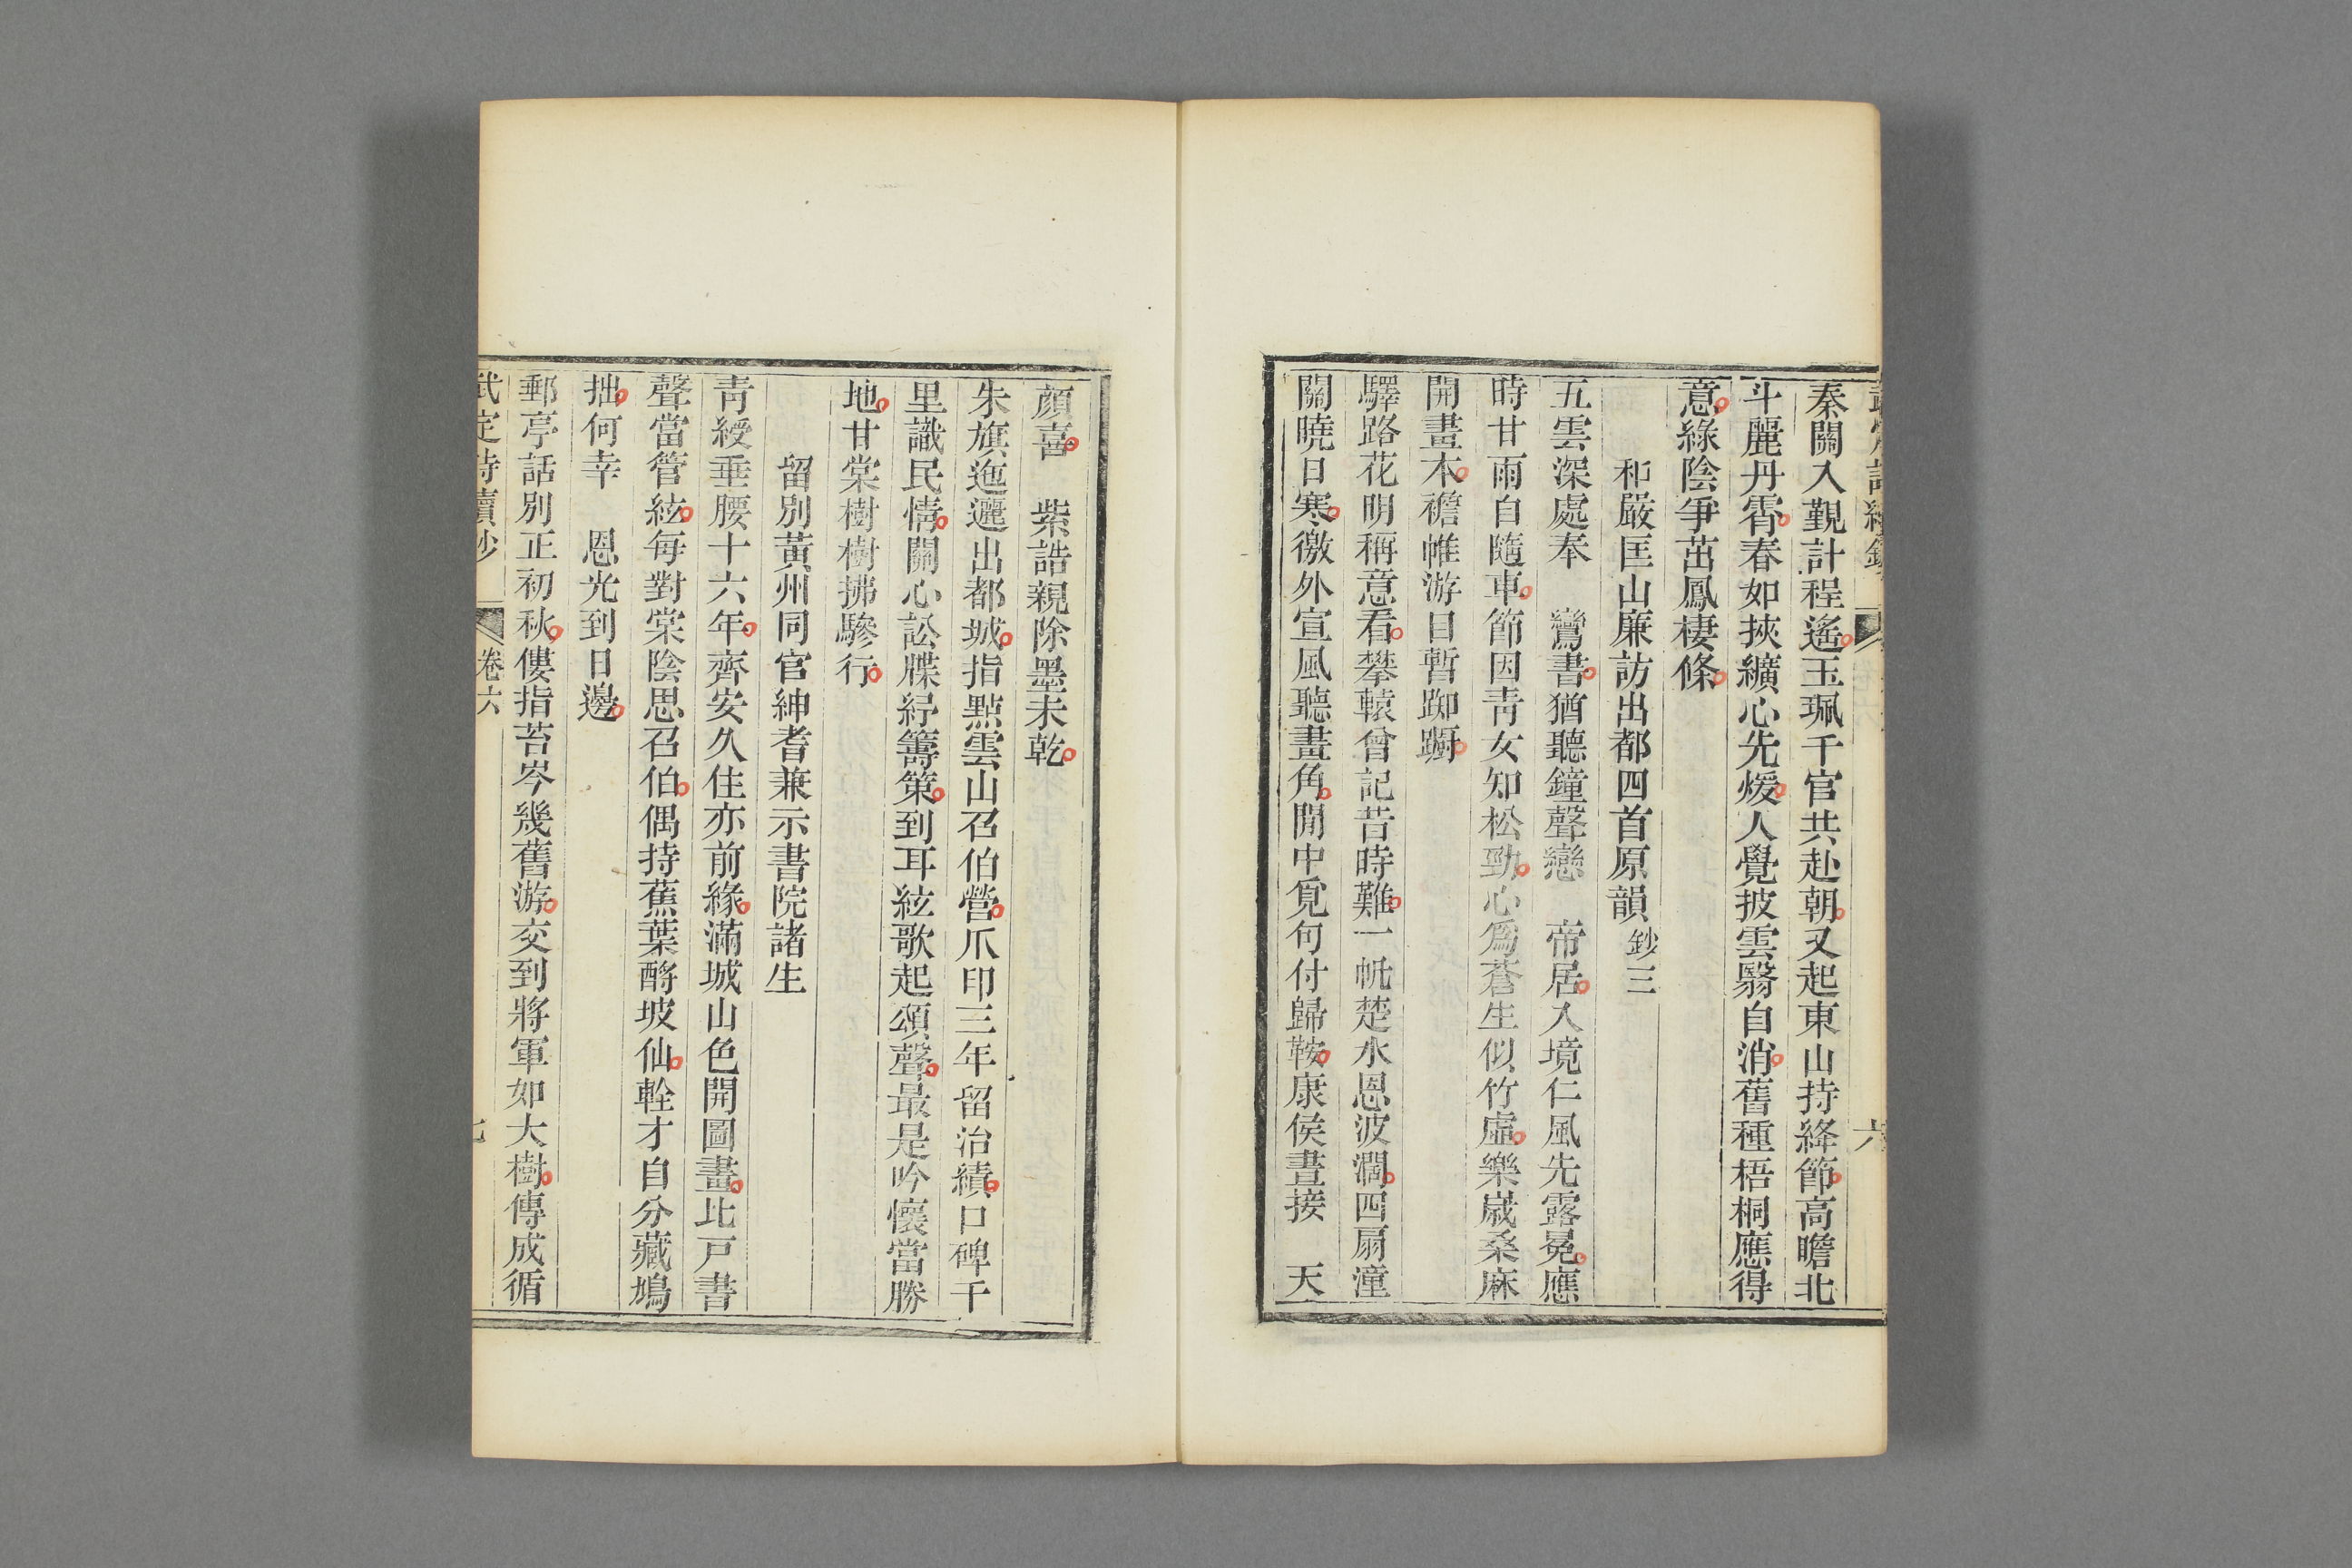 秦關入觀計程遙玉珮千官共赴朝又起東山持絳節高瞻北
斗麗丹霄春如挾纊心先煖人覺披雲翳自消舊種梧桐應得
意緣陰爭茁鳳棲條
和嚴匡山廉訪出都四首原韻鈔三
五雲深處奉 鸞書猶聽鐘聲戀 帝居入境仁風先露冕應
時甘雨自隨車節因青女知松勁心爲蒼生似竹虛樂歲桑麻
開畫本襜帷游目暫踟躕
驛路花明稱意看攀轅曾記昔時難一帆楚水恩波濶四扇潼
關曉日寒徼外宣風聽畫角閒中覓句付歸鞍康侯晝接 天
顏喜 紫誥親除墨未乾
朱旗迤邐出都城指點雲山召伯營爪印三年留治績口碑千
里識民情關心訟牒紓籌策到耳絃歌起頌聲最是吟懷當勝
地甘棠樹樹拂驂行
留別黃州同官紳耆兼示書院諸生
青綬垂腰十六年齊安久住亦前緣滿城山色開圖畫北戸書
聲當管絃每對棠陰思召伯偶持蕉葉酹坡仙輇才自分藏鳩
拙何幸 恩光到日邊
郵亭話別正初秋僂指苔岑幾舊游交到將軍如大樹傳成循
武定詩續鈔 卷六 七